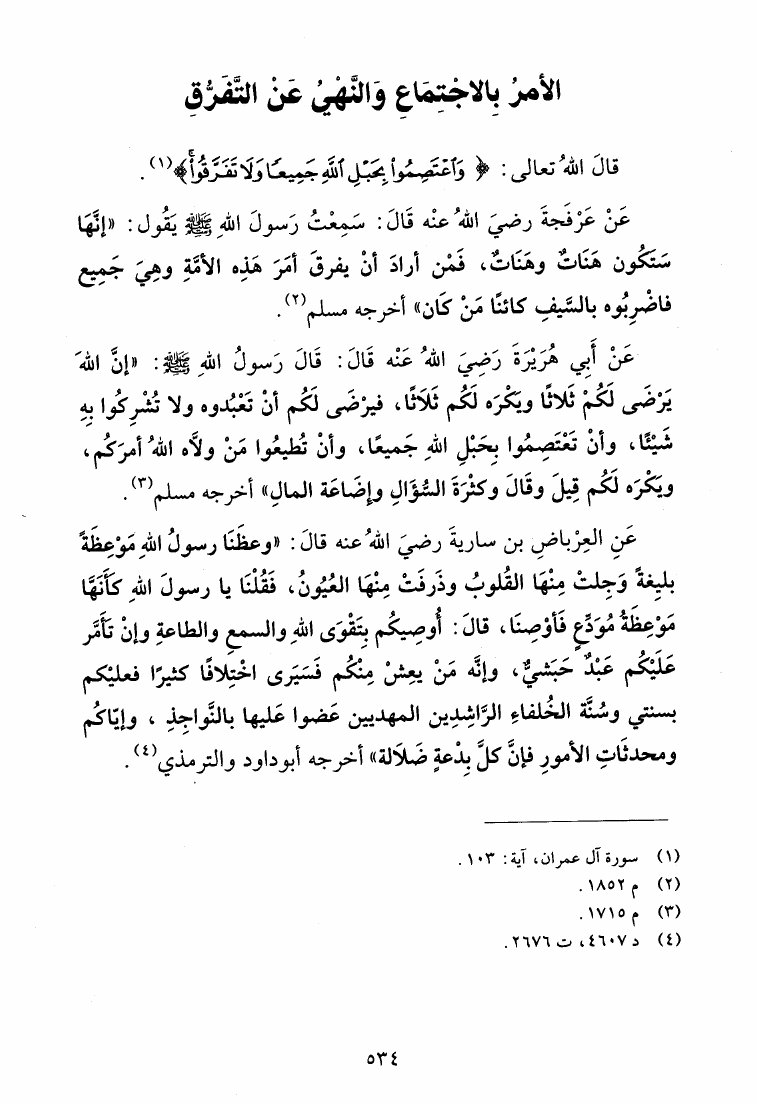 الأمرُ بِالاجْتِمَاعِ وَالنَّهْيُ عَنْ التَّفَرُّقِ
قالَ اللهُ تعالى: ﴿ وَٱعْتَصِمُوا۟ بِحَبْلِ ٱللَّهِ جَمِيعًا وَلَا تَفَرَّقُوا۟ۚ﴾(١).
عَنْ عَرْفَجةَ رضيَ اللهُ عنْه قَالَ: سَمِعْتُ رَسولَ اللهِ ﷺ يَقُول: «إنَّهَا
سَتَكُون هَنَاتٌ وهَنَاتٌ، فَمْن أرادَ أنْ يفرقَ أمَرَ هَذِه الأمَّةِ وهِيَ جَمِيع
فاضْرِبُوه بالسَّيفِ كائنًا مَنْ كَان» أخرجه مسلم(٢).
عَنْ أَبِي هُرَيْرَةَ رَضِيَ اللهُ عَنْه قَالَ: قَالَ رَسولُ اللهِ ﷺ: «إنَّ اللهَ
يَرْضَى لَكُمْ ثَلاثًا ويَكْرَه لَكُم ثَلَاثًا، فيرْضَى لَكُم أنْ تَعْبُدوه ولا تُشْرِكُوا بِهِ
شَيْئًا، وأنْ تَعْتَصِمُوا بِحَبْلِ اللهِ جَميعًا، وأنْ تُطيعُوا مَنْ ولاَّه اللهُ أمرَكُم،
ويَكْرَه لَكُم قِيلَ وقَالَ وكثْرَةَ السُّؤَالِ وإضَاعَة المالِ» أخرجه مسلم(٣).
عَنِ العِرْباضِ بن ساريةَ رضيَ اللهُ عنه قالَ: «وعظَنَا رسولُ اللهِ مَوْعِظَةً
بليغةً وَجِلتْ مِنْهَا القُلوبُ وذَرفَتْ مِنْهَا العُيُونُ، فَقُلْنَا يا رسولَ اللهِ كَأنَهَّا
مَوْعِظَةُ مُوَدِّعٍ فَأوْصِنَا، قالَ: أُوصِيكُم بِتَقْوَى اللهِ والسمعِ والطاعةِ وإنْ تَأمَّر
عَلَيْكُم عَبْدٌ حَبَشيٌّ، وإنَّه مَنْ يعِشْ مِنْكُم فَسَيَرى اخْتِلافًا كثيرًا فعليْكم
بسنتي وسُنَّة الخُلفاءِ الرَّاشِدِين المهديين عَضوا عَليها بالنَّواجِذِ ، وإيّاكُم
ومحدثَاتِ الأمورِ فإنَّ كلَّ بِدْعةٍ ضَلاَلة» أخرجه أبوداود والترمذي(٤).
(١) سورة آل عمران، آية: ١٠٣.
(٢) م ١٨٥٢.
(٣) م ١٧١٥.
(٤) د ٤٦٠٧، ت ٢٦٧٦.
٥٣٤